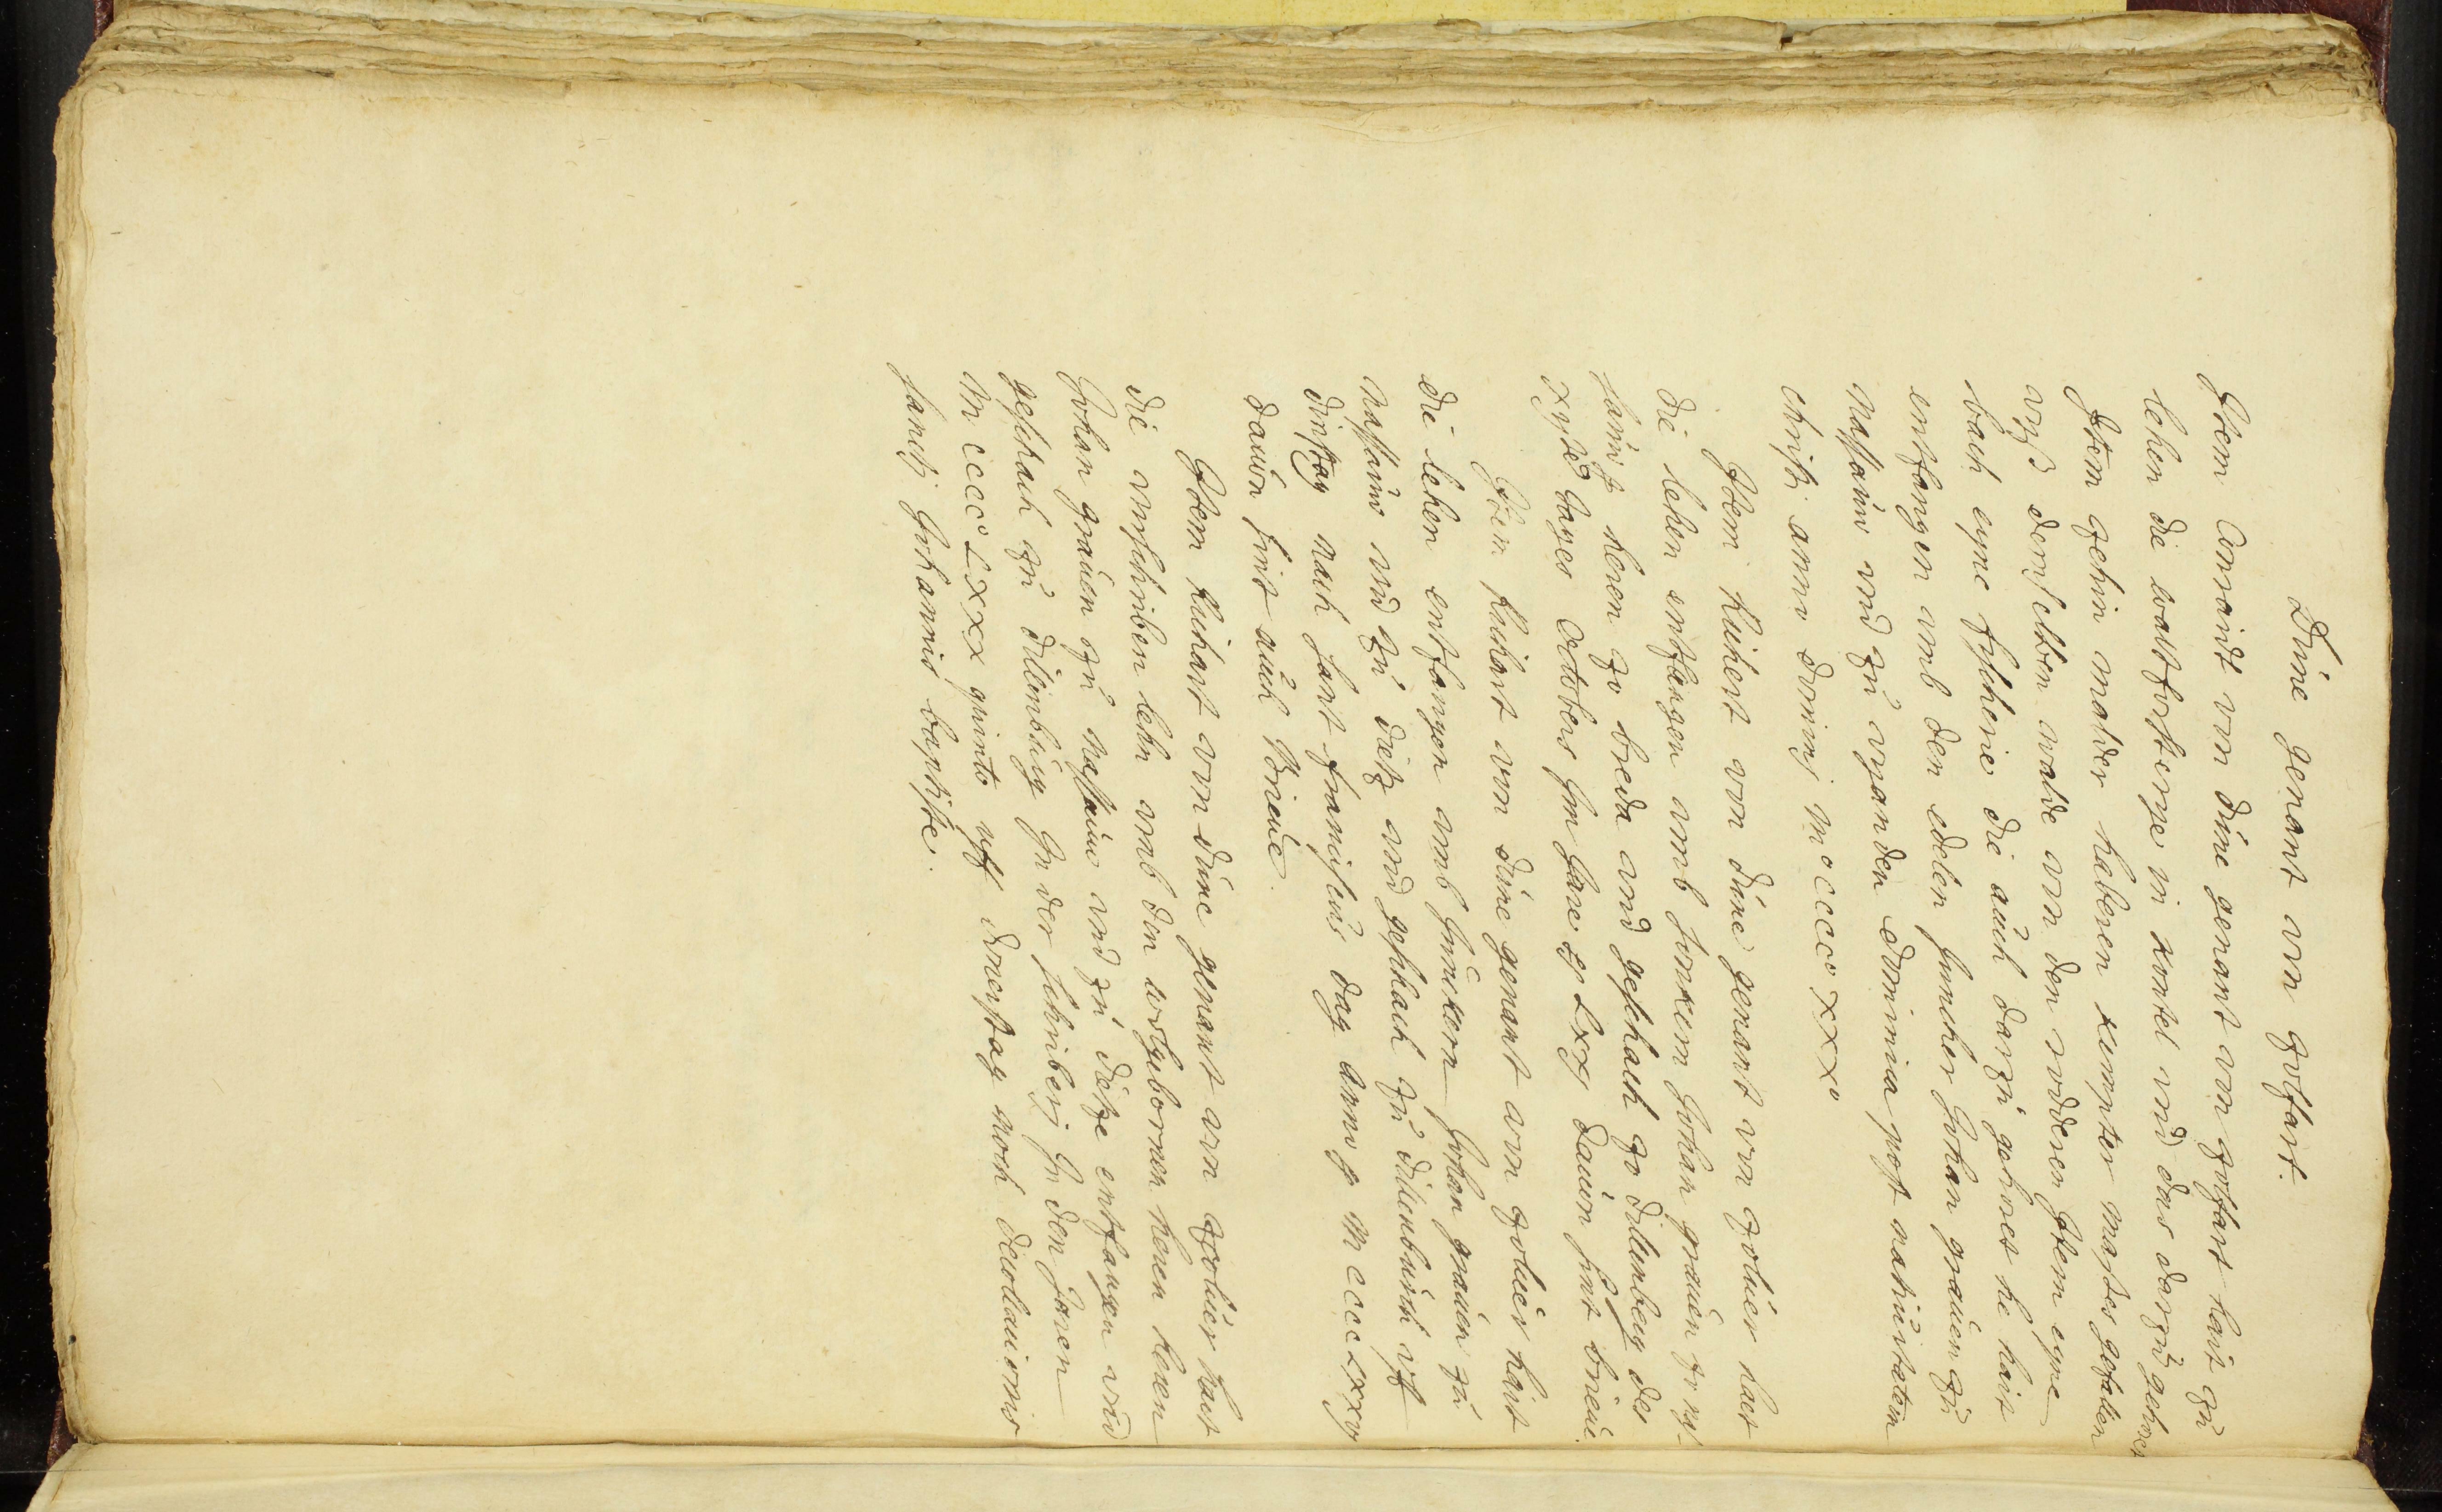 Düne genant von zolfart.
Item Conraidt von düne genant von zolfart hait zu
lehen die waltforsterye in kontel vnd das darzu gehoret
Item zehin malder haberen kompter masses gefallen
vyß demselben walde von den roderen Item eyne
bach eyne fyscherie die auch darzu gehoret he hait
entfangen vmb den edelen Juncher Johan grauen zu
nassauw vnd zu vyanden dominica post natiuitatem
christi anno domini M° cccc° xxx°
Item kuhert von düne genant von zoluer hat
die lehen entfangen vmb Jonkern Johan grauen zo nas-
sauwe heren zo breda vnd geschach zo dillenberg des
xyſtẽ dages Octobers Im Jare xx Lxxj dauon sint brieue.
Item kuhart von düne genant von zoluer hait
die lehen entfangen vmb Junckern Johan grauen zu
Nassauw vnd zu dietz vnd geschach zu dilenburch vff
dinstag nach sant franciscus dag anno zc M cccc Lxxiij
dauon sint auch brieue.
Item kuhart von düne genant von zoluer haut
die vurschriben lehn vmb den wolgebornen heren heren
Johan grauen zu Nassauw vnd zu dietze entfangen vnd
geschach zu dillenburg In der schriberij In den Jaren
M cccc° Lxxx quinto vff donerstag noch decollacionis
sancti Johannis baptiste.